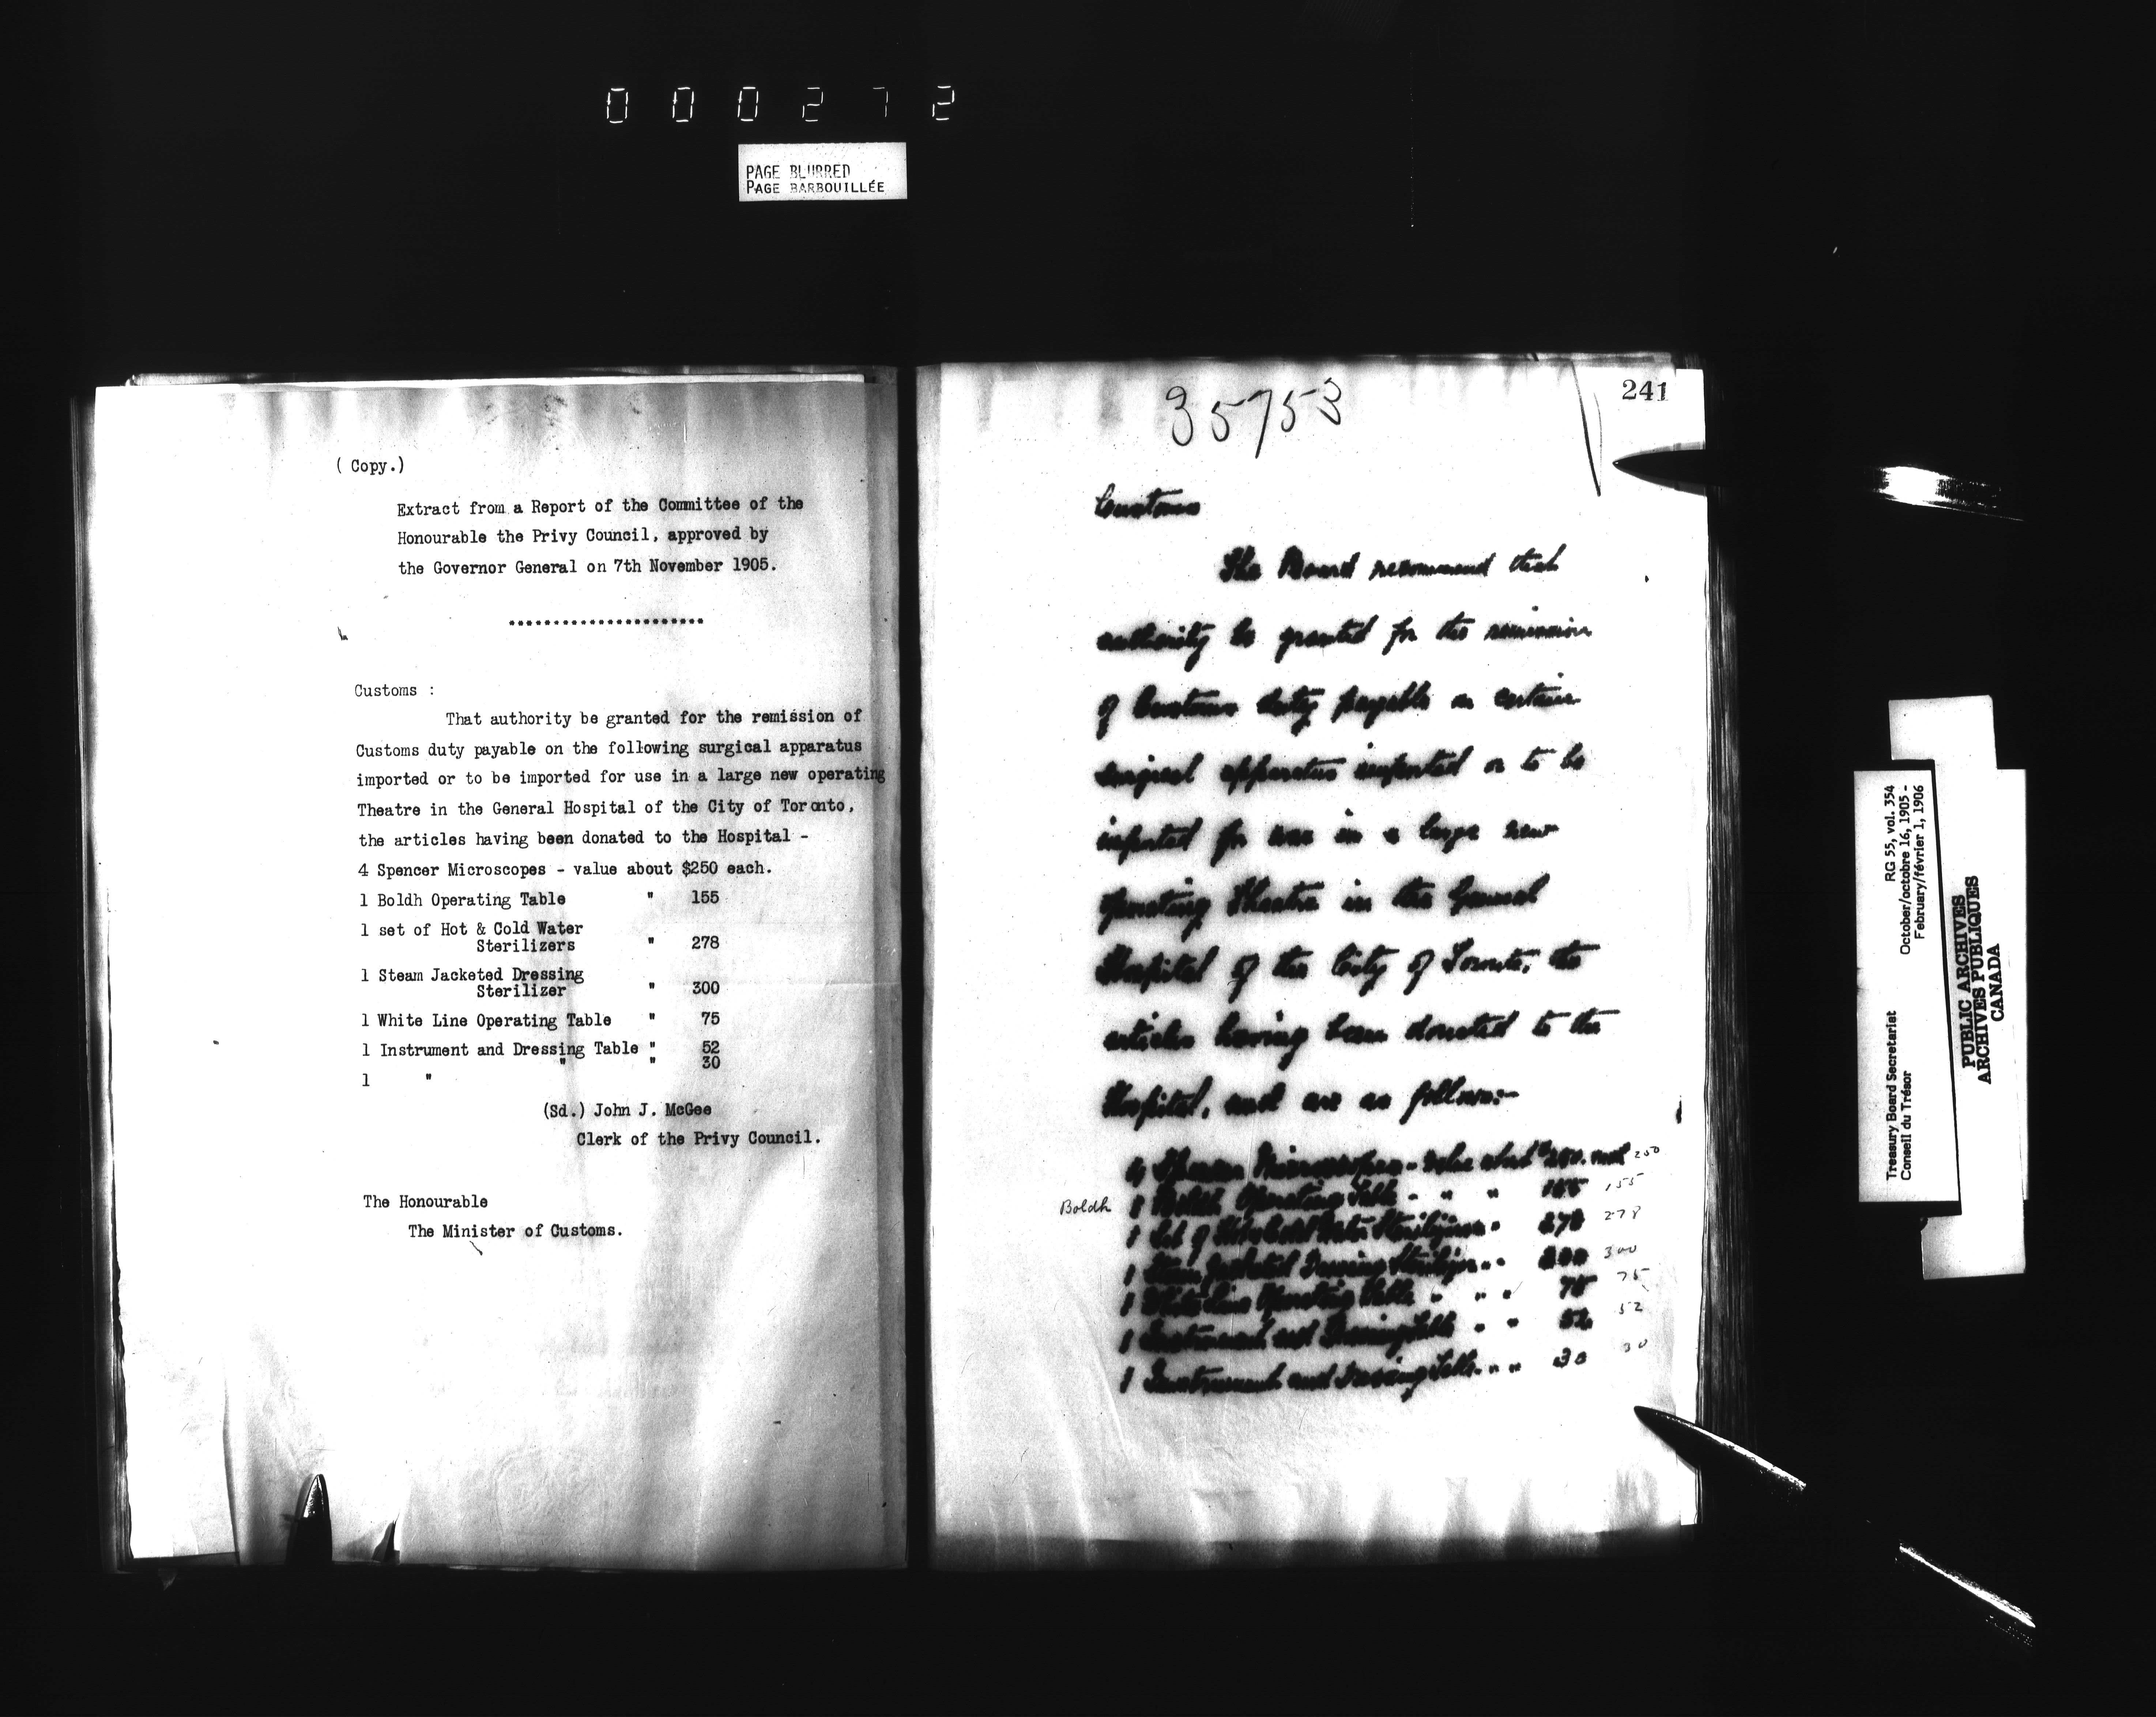 000272
PAGE BLURRED
PAGE BARBOUILLÉE
( Copy.)
Extract from a Report of the Committee of the
Honourable the Privy Council, approved by
the Governor General on 7th November 1905.
......................
Customs :
That authority be granted for the remission of
Customs duty payable on the following surgical apparatus
imported or to be imported for use in a large new operating
Theatre in the General Hospital of the City of Toronto,
the articles having been donated to the Hospital -
4 Spencer Microscopes - value about $250 each.
1 Boldh Operating Table " 155
1 set of Hot & Cold Water
Sterilizers " 278
1 Steam Jacketed Dressing
Sterilizer " 300
1 White Line Operating Table " 75
1 Instrument and Dressing Table " 52
1 " " " 30
(Sd.) John J. McGee
Clerk of the Privy Council.
The Honourable
The Minister of Customs.
241
35753
Customs
The Board recommend that
authority be granted for the remission
of Customs duty payable on certain
surgical apparatus imported or to be
imported for use in a large new
operating Theatre in the General
Hospital of the City of Toronto, the
articles having been donated to the
Hospital, and are as follows:-
4 Spencer Microscopes - value about $250. each 250
Boldh 1 Boldh Operating Table - " " 155 155
1 Set of Hot & Cold Water Sterilizers " 278 278
1 Steam Jacketed Dressing Sterilizer " " 300 300
1 White Line Operating Table " " " 75 75
1 Instrument and Dressing Table " " 52 52
1 Instrument and Dressing Table " " 30 30
Treasury Board Secretariat RG 55, vol. 354
Conseil du Trésor October/octobre 16, 1905 -
February/février 1, 1906
PUBLIC ARCHIVES
ARCHIVES PUBLIQUES
CANADA